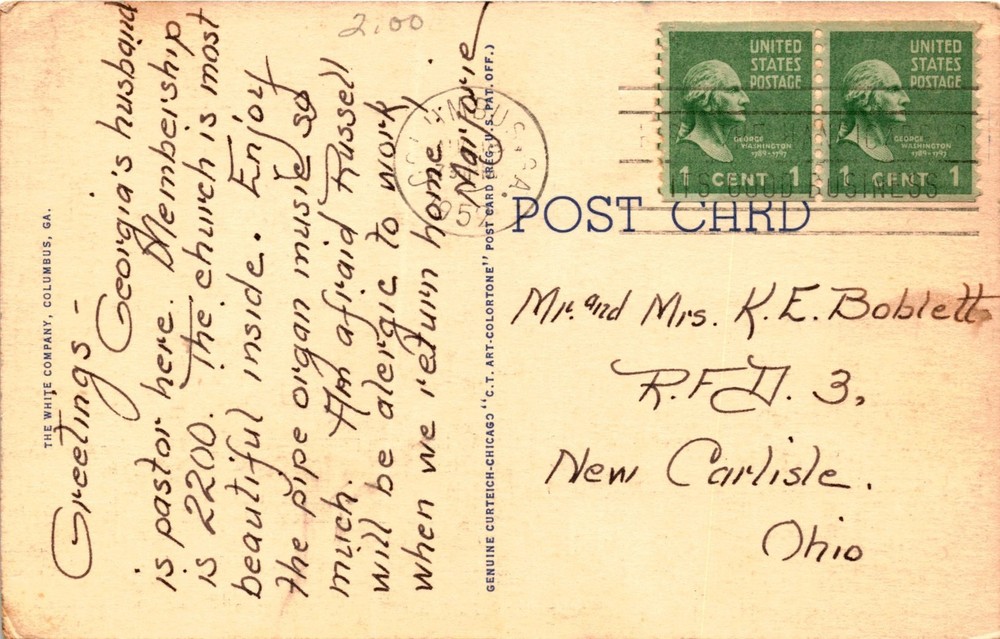 2.00
THE WHITE COMPANY, COLUMBUS, GA.
Greetings-
Georgia's husband
is pastor here. Membership
is 2200. The church is most
beautiful inside. Enjoy
the pipe organ music so
much. Am afraid Russell
will be alergic to work,
when we return home.
Marorie
GENUINE CURTEICH-CHICAGO "C.T. ART-COLORTONE" POST CARD (REG. U.S. PAT. OFF.)
COLUMBUS, GA.
UNITED
STATES
POSTAGE
GEORGE
WASHINGTON
1789-1797
1 CENT 1
UNITED
STATES
POSTAGE
GEORGE
WASHINGTON
1789-1797
1 CENT 1
ITS GOOD BUSINESS
POST CARD
Mr. and Mrs. K. E. Boblett
R.F.D. 3,
New Carlisle.
Ohio